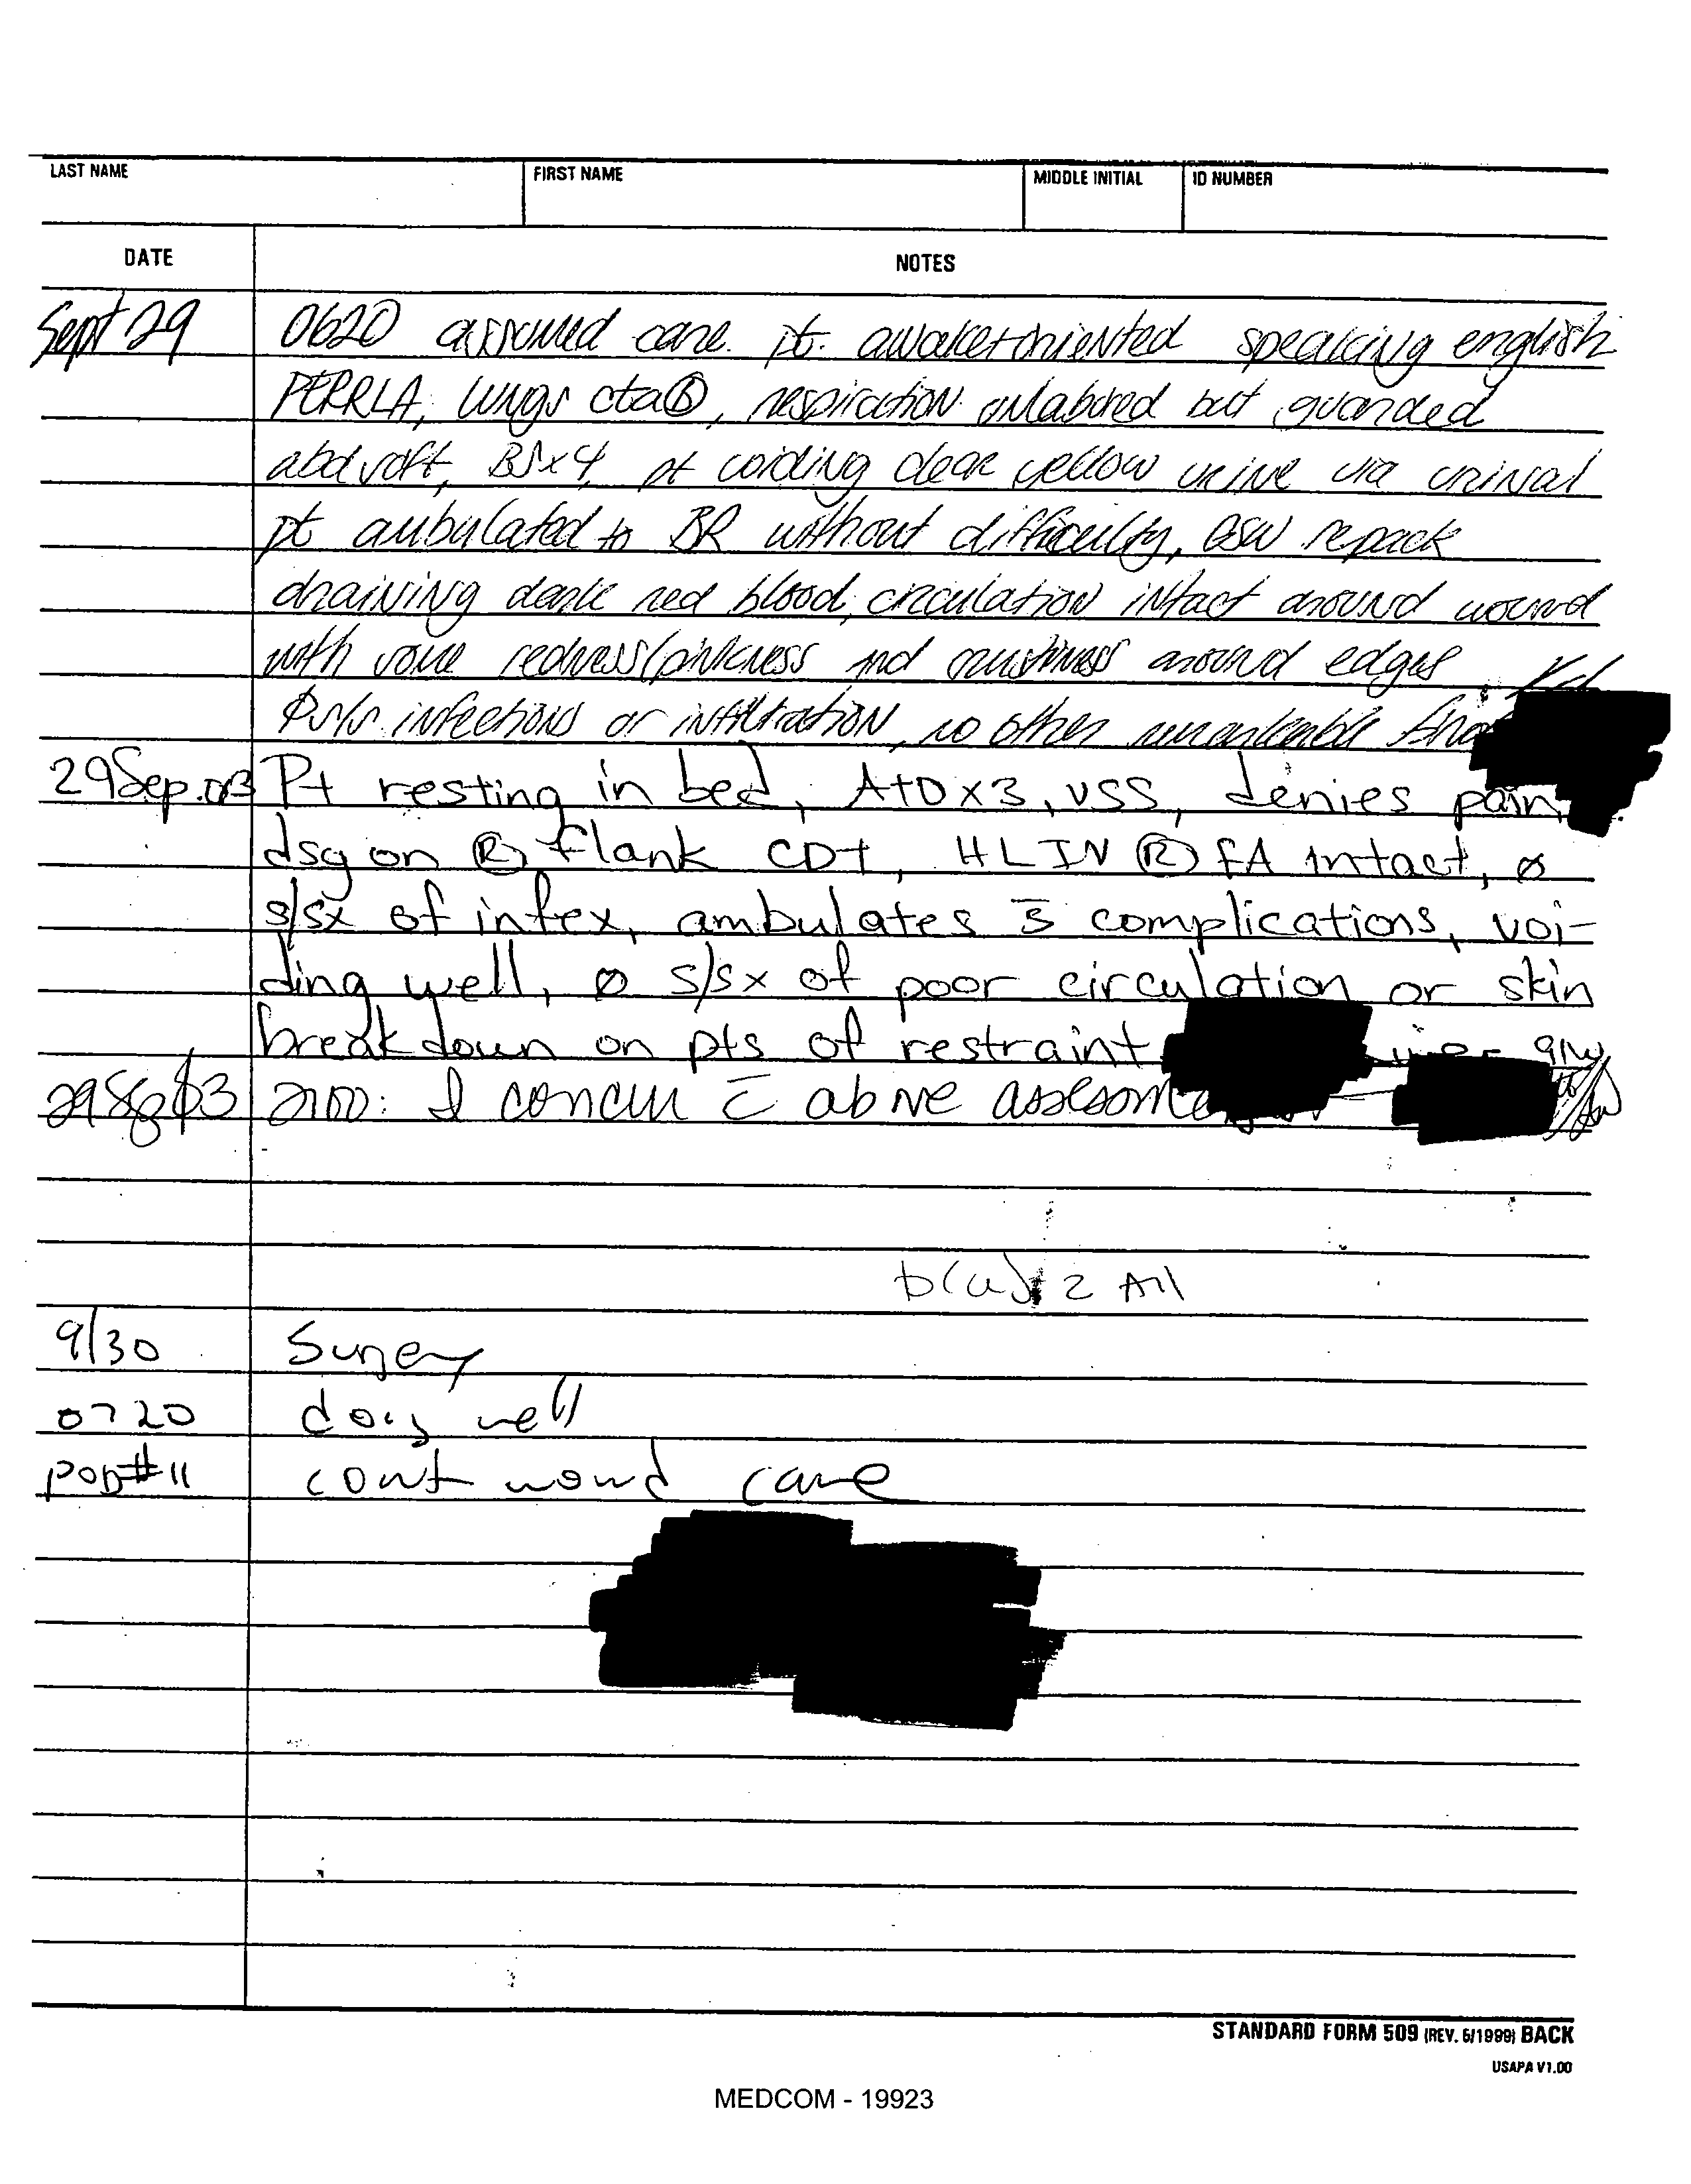 LAST NAME FIRST NAME MIDDLE INITIAL ID NUMBER
DATE NOTES
Sept 29 0620 assumed care. pt. awake+oriented speaking english
PERRLA, lungs cta Ⓑ, respiration unlabored but guarded
abd soft, BSx4, pt voiding clear yellow urine via urinal
pt ambulated to BR without difficulty, GSW repack
draining dark red blood, circulation intact around wound
with some redness/pinkness and crustiness around edges
Ø s/s infections or infiltration, no other remarkable
29Sep.03 Pt resting in bed, A+Ox3, VSS, denies pain,
dsg on Ⓡ flank CDI, HL IN Ⓡ FA intact, ø
s/sx of infex, ambulates s̄ complications, voi-
ding well, ø s/sx of poor circulation or skin
breakdown on pts of restraint 91W
29Sep03 2100: I concur c̄ above
b(6)-2 All
9/30 Surgery
0720 doing well
POD#11 cont wound care
STANDARD FORM 509 (REV. 5/1999) BACK
USAPA V1.00
MEDCOM - 19923